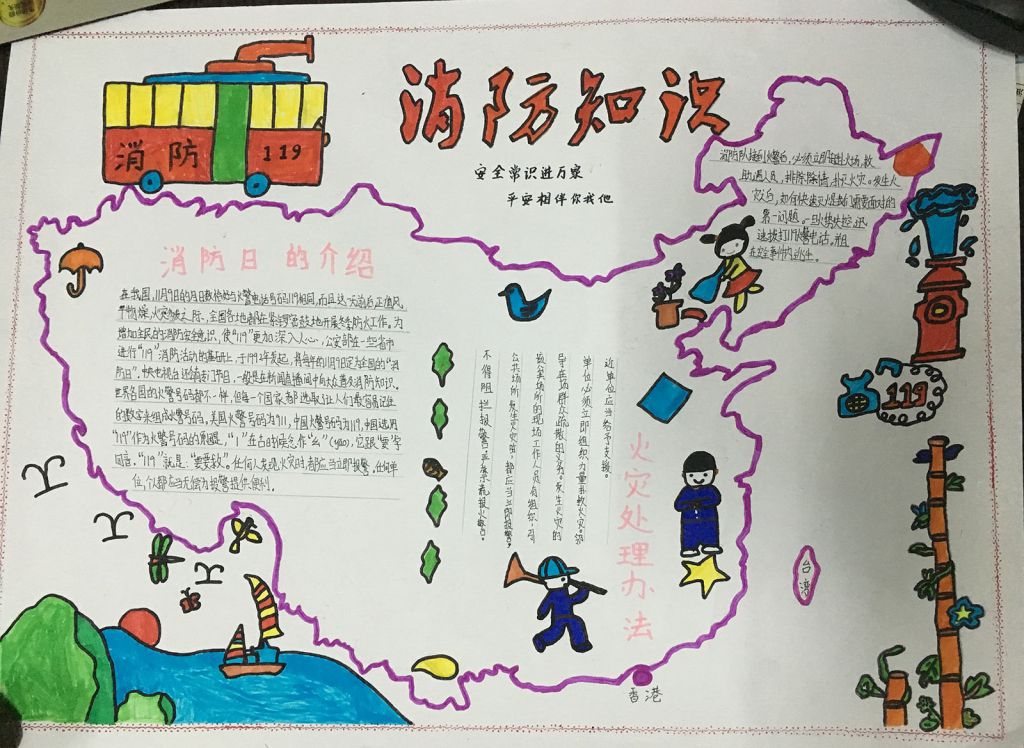 消防知识
消防 119
安全常识进万家
平安相伴你我他
消防队接到火警后,必须立即赶赴火场,救
助遇人员,排除险情,扑灭火灾。发生火
灾后,如何快速灭火是部门需要面对的
第一问题。一旦火势失控,迅
速拨打119火警电话。并且
在安全事件内逃生。
消防日的介绍
在我国,11月9日的月日数恰好与火警电话号码119相同,而且这一天前后正值风
干物燥,火灾频发之际,全国各地都在紧锣密鼓地开展冬季防火工作。为
增加全民的消防安全意识,使“119”更加深入人心,公安部在一些省市
进行“119”消防活动的基础上,于1992年发起,将每年的11月9日定为全国的“消
防日”。中央电视台还会有专门节目,一般是在新闻直播间中向大众普及消防知识。
世界各国的火警号码都不一样,但每一个国家都选取了让人们最容易记住
的数字来组成火警号码。美国火警号码为911,中国火警号码为119,中国选用
“119”作为火警号码的原因,“1”在古时候念作“幺”(yāo),它跟“要”字
同音。“119”就是:“要要救”。任何人发现火灾时,都应当立即报警。任何单
位,个人都应当无偿为报警提供便利。
火灾处理办法
近单位应当给予支援。
单位必须立即组织力量扑救火灾。邻
导在场群众疏散的义务。发生火灾的
该公共场所的现场工作人员有组织,引
公共场所发生火灾时,都应当立即报警。
不得阻拦报警。严禁谎报火警。
119
台湾
香港